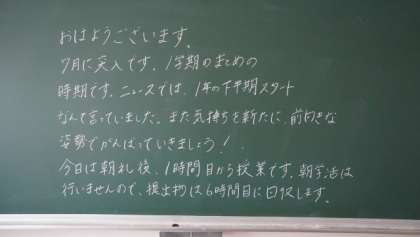 おはようございます。
7月に突入です。1学期のまとめの
時期です。ニュースでは、1年の下半期スタート
なんて言っていました。また気持ちを新たに、前向きな
姿勢でがんばっていきましょう!
今日は朝礼後、1時間目から授業です。朝学活は
行いませんので、提出物は6時間目に回収します。